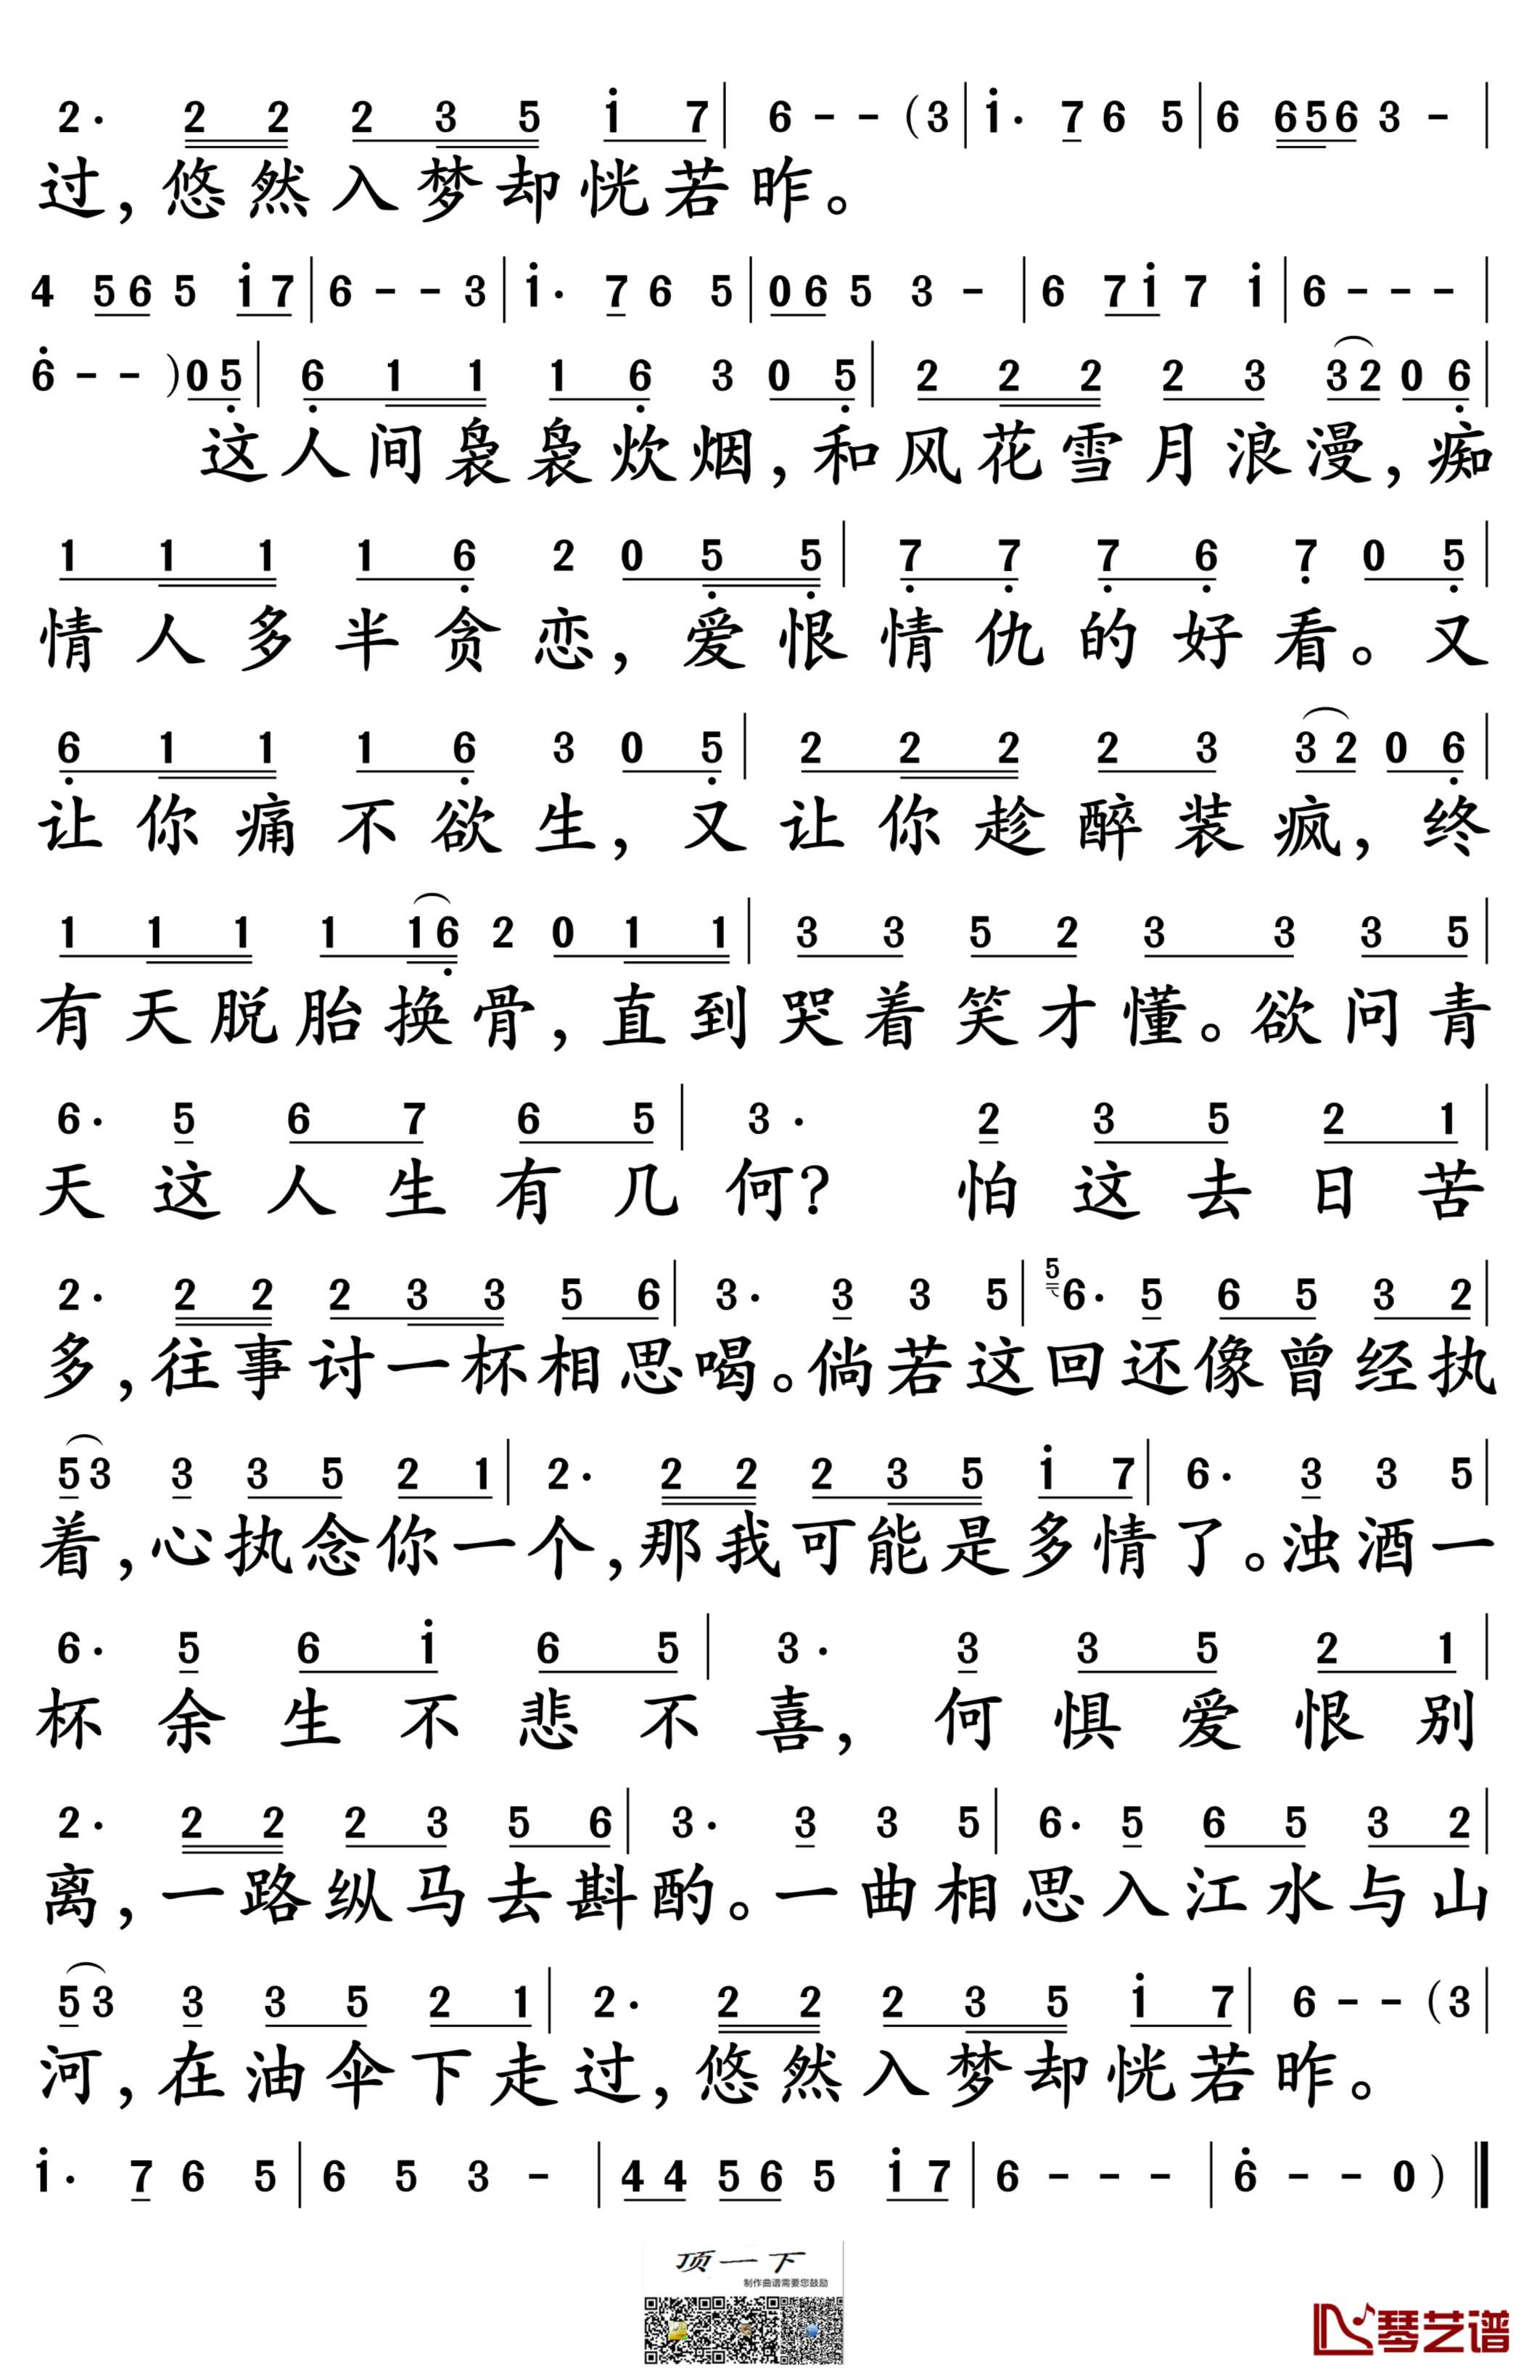 2· 2 2 2 3 5 i 7 | 6 - - (3 | i· 7 6 5 | 6 656 3 - |
过，悠然入梦却恍若昨。
4 56 5 i7 | 6 - - 3 | i· 7 6 5 | 06 5 3 - | 6 7i 7 i | 6 - - - |
6 - - )05 | 6 1 1 1 6 3 0 5 | 2 2 2 2 3 32 0 6 |
这人间袅袅炊烟，和风花雪月浪漫，痴
1 1 1 1 6 2 0 5 5 | 7 7 7 6 7 0 5 |
情人多半贪恋，爱恨情仇的好看。又
6 1 1 1 6 3 0 5 | 2 2 2 2 3 32 0 6 |
让你痛不欲生，又让你趁醉装疯，终
1 1 1 1 16 2 0 1 1 | 3 3 5 2 3 3 3 5 |
有天脱胎换骨，直到哭着笑才懂。欲问青
6· 5 6 7 6 5 | 3· 2 3 5 2 1 |
天这人生有几何？怕这去日苦
2· 2 2 2 3 3 5 6 | 3· 3 3 5 | 5 6· 5 6 5 3 2 |
多，往事讨一杯相思喝。倘若这回还像曾经执
53 3 3 5 2 1 | 2· 2 2 2 3 5 i 7 | 6· 3 3 5 |
着，心执念你一个，那我可能是多情了。浊酒一
6· 5 6 i 6 5 | 3· 3 3 5 2 1 |
杯余生不悲不喜，何惧爱恨别
2· 2 2 2 3 5 6 | 3· 3 3 5 | 6· 5 6 5 3 2 |
离，一路纵马去斟酌。一曲相思入江水与山
53 3 3 5 2 1 | 2· 2 2 2 3 5 i 7 | 6 - - (3 |
河，在油伞下走过，悠然入梦却恍若昨。
i· 7 6 5 | 6 5 3 - | 44 56 5 i7 | 6 - - - | 6 - - 0 ) ‖
顶一下
制作曲谱需要您鼓励
琴艺谱